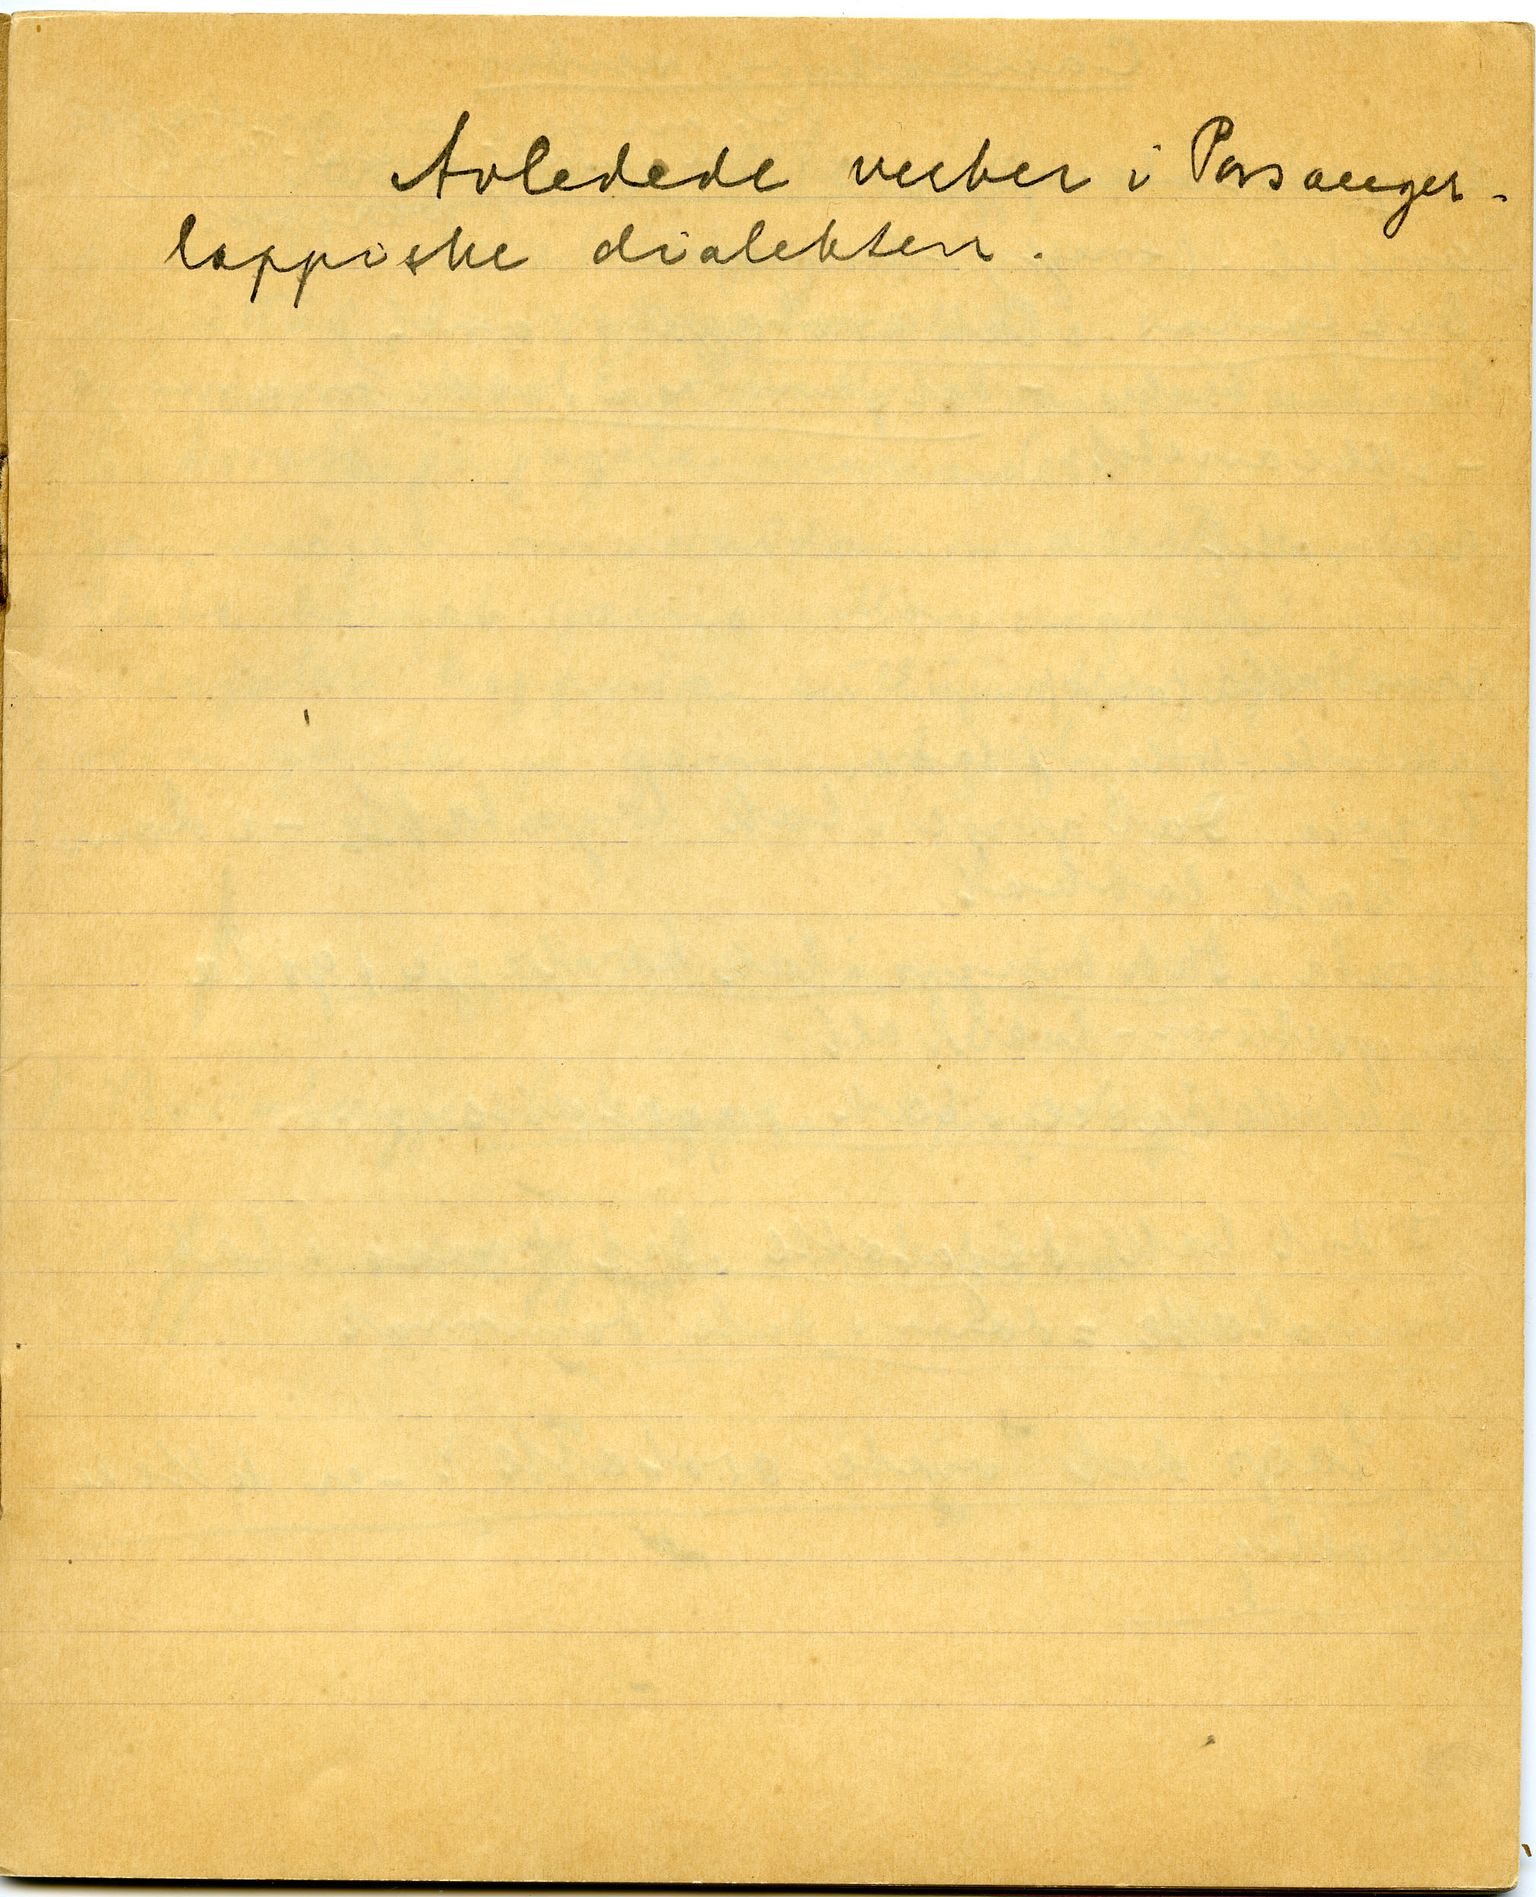 Avledede verber i Porsanger-
lappiske dialekten.